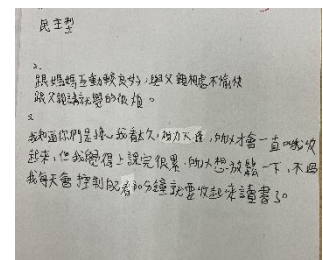 民主型
2.
跟媽媽互動較良好,與父親相處不愉快
跟父親講就覺的很煩。
3
我知道你們是擔心我看太久,視力不達,所以才會一直叫我收
起來,但我覺得上課完很累,所以想放鬆一下,不過
我每天會控制只看30分鐘就要收起來讀書了。